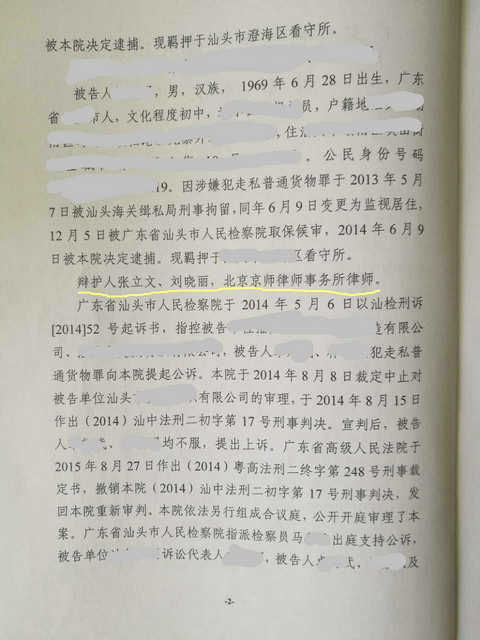 被本院决定逮捕。现羁押于汕头市澄海区看守所。
被告人 ，男，汉族， 1969 年 6 月 28 日出生，广东
省 市人，文化程度初中， 员，户籍地
住
。公民身份号码
19。因涉嫌犯走私普通货物罪于 2013 年 5 月
7 日被汕头海关缉私局刑事拘留，同年 6 月 9 日变更为监视居住，
12 月 5 日被广东省汕头市人民检察院取保候审，2014 年 6 月 9
日被本院决定逮捕。现羁押于 区看守所。
辩护人张立文、刘晓丽，北京京师律师事务所律师。
广东省汕头市人民检察院于 2014 年 5 月 6 日以汕检刑诉
[2014]52 号起诉书，指控被告 造有限公
司、 有限公司，被告人 犯走私普
通货物罪向本院提起公诉。本院于 2014 年 8 月 8 日裁定中止对
被告单位汕头 有限公司的审理，于 2014 年 8 月 15 日
作出（2014）汕中法刑二初字第 17 号刑事判决。宣判后，被告
人 均不服，提出上诉。广东省高级人民法院于
2015 年 8 月 27 日作出（2014）粤高法刑二终字第 248 号刑事裁
定书，撤销本院（2014）汕中法刑二初字第 17 号刑事判决，发
回本院重新审判。本院依法另行组成合议庭，公开开庭审理了本
案。广东省汕头市人民检察院指派检察员马 出庭支持公诉，
被告单位 诉讼代表人 ，被告人 及
-2-